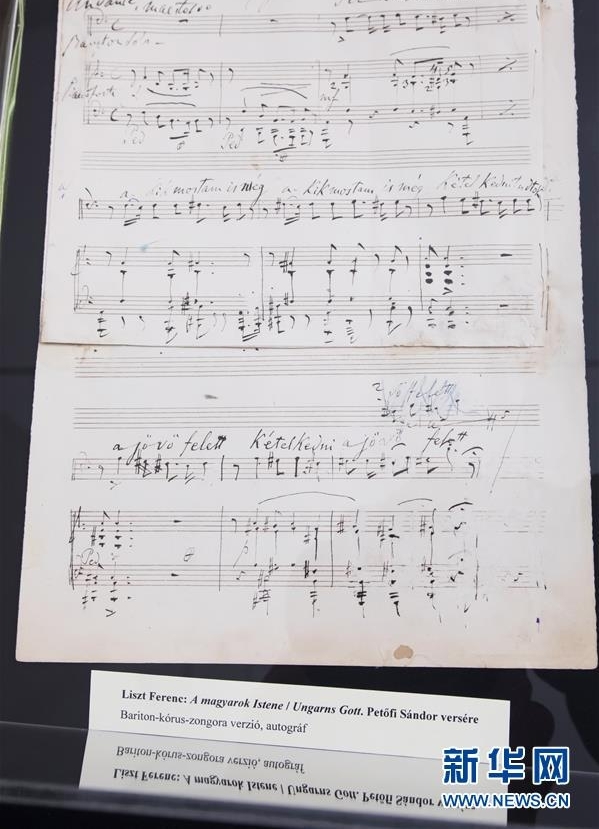 Andante, maestoso
Baritonsolo
Pianoforte
mf
Ped
Ped
a kik mostam is még a kik mostam is még kételkedni tudtok
jövő felett
a jövő felett Kételkedni a jövő felett
Ped
Liszt Ferenc: A magyarok Istene / Ungarns Gott. Petőfi Sándor versére
Bariton-kórus-zongora verzió, autográf
Bariton-kórus-zongora verzió, autográf
Liszt Ferenc: A magyarok Istene / Ungarns Gott. Petőfi Sándor
新华网
WWW.NEWS.CN